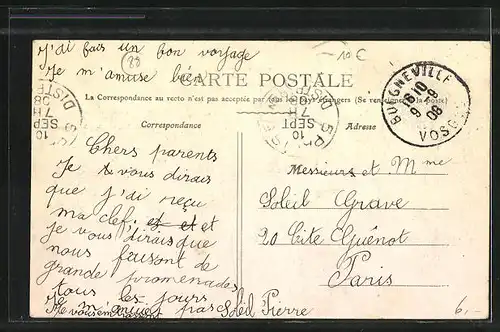 J'ai fais un bon voyage
Je m'amuse bien
(20)
10€
CARTE POSTALE
La Correspondance au recto n'est pas acceptée par tous les pays étrangers (Se renseigner à la poste)
Correspondance
Adresse
10
SEPT
7H
08
DISTR
10
SEPT
7H
08
PARIS
DISTR
BULGNEVILLE
18 10
9 9
08
VOSGES
Chers parents
Je vous dirais
que j'ai reçu
ma clef. et et et
je vous dirais que
nous feusont de
grande promenades
tous les jours
Je vous embrasse
Soleil Pierre
Messieurs et Mme
Soleil Grave
20 Cité Guénot
Paris
6,-